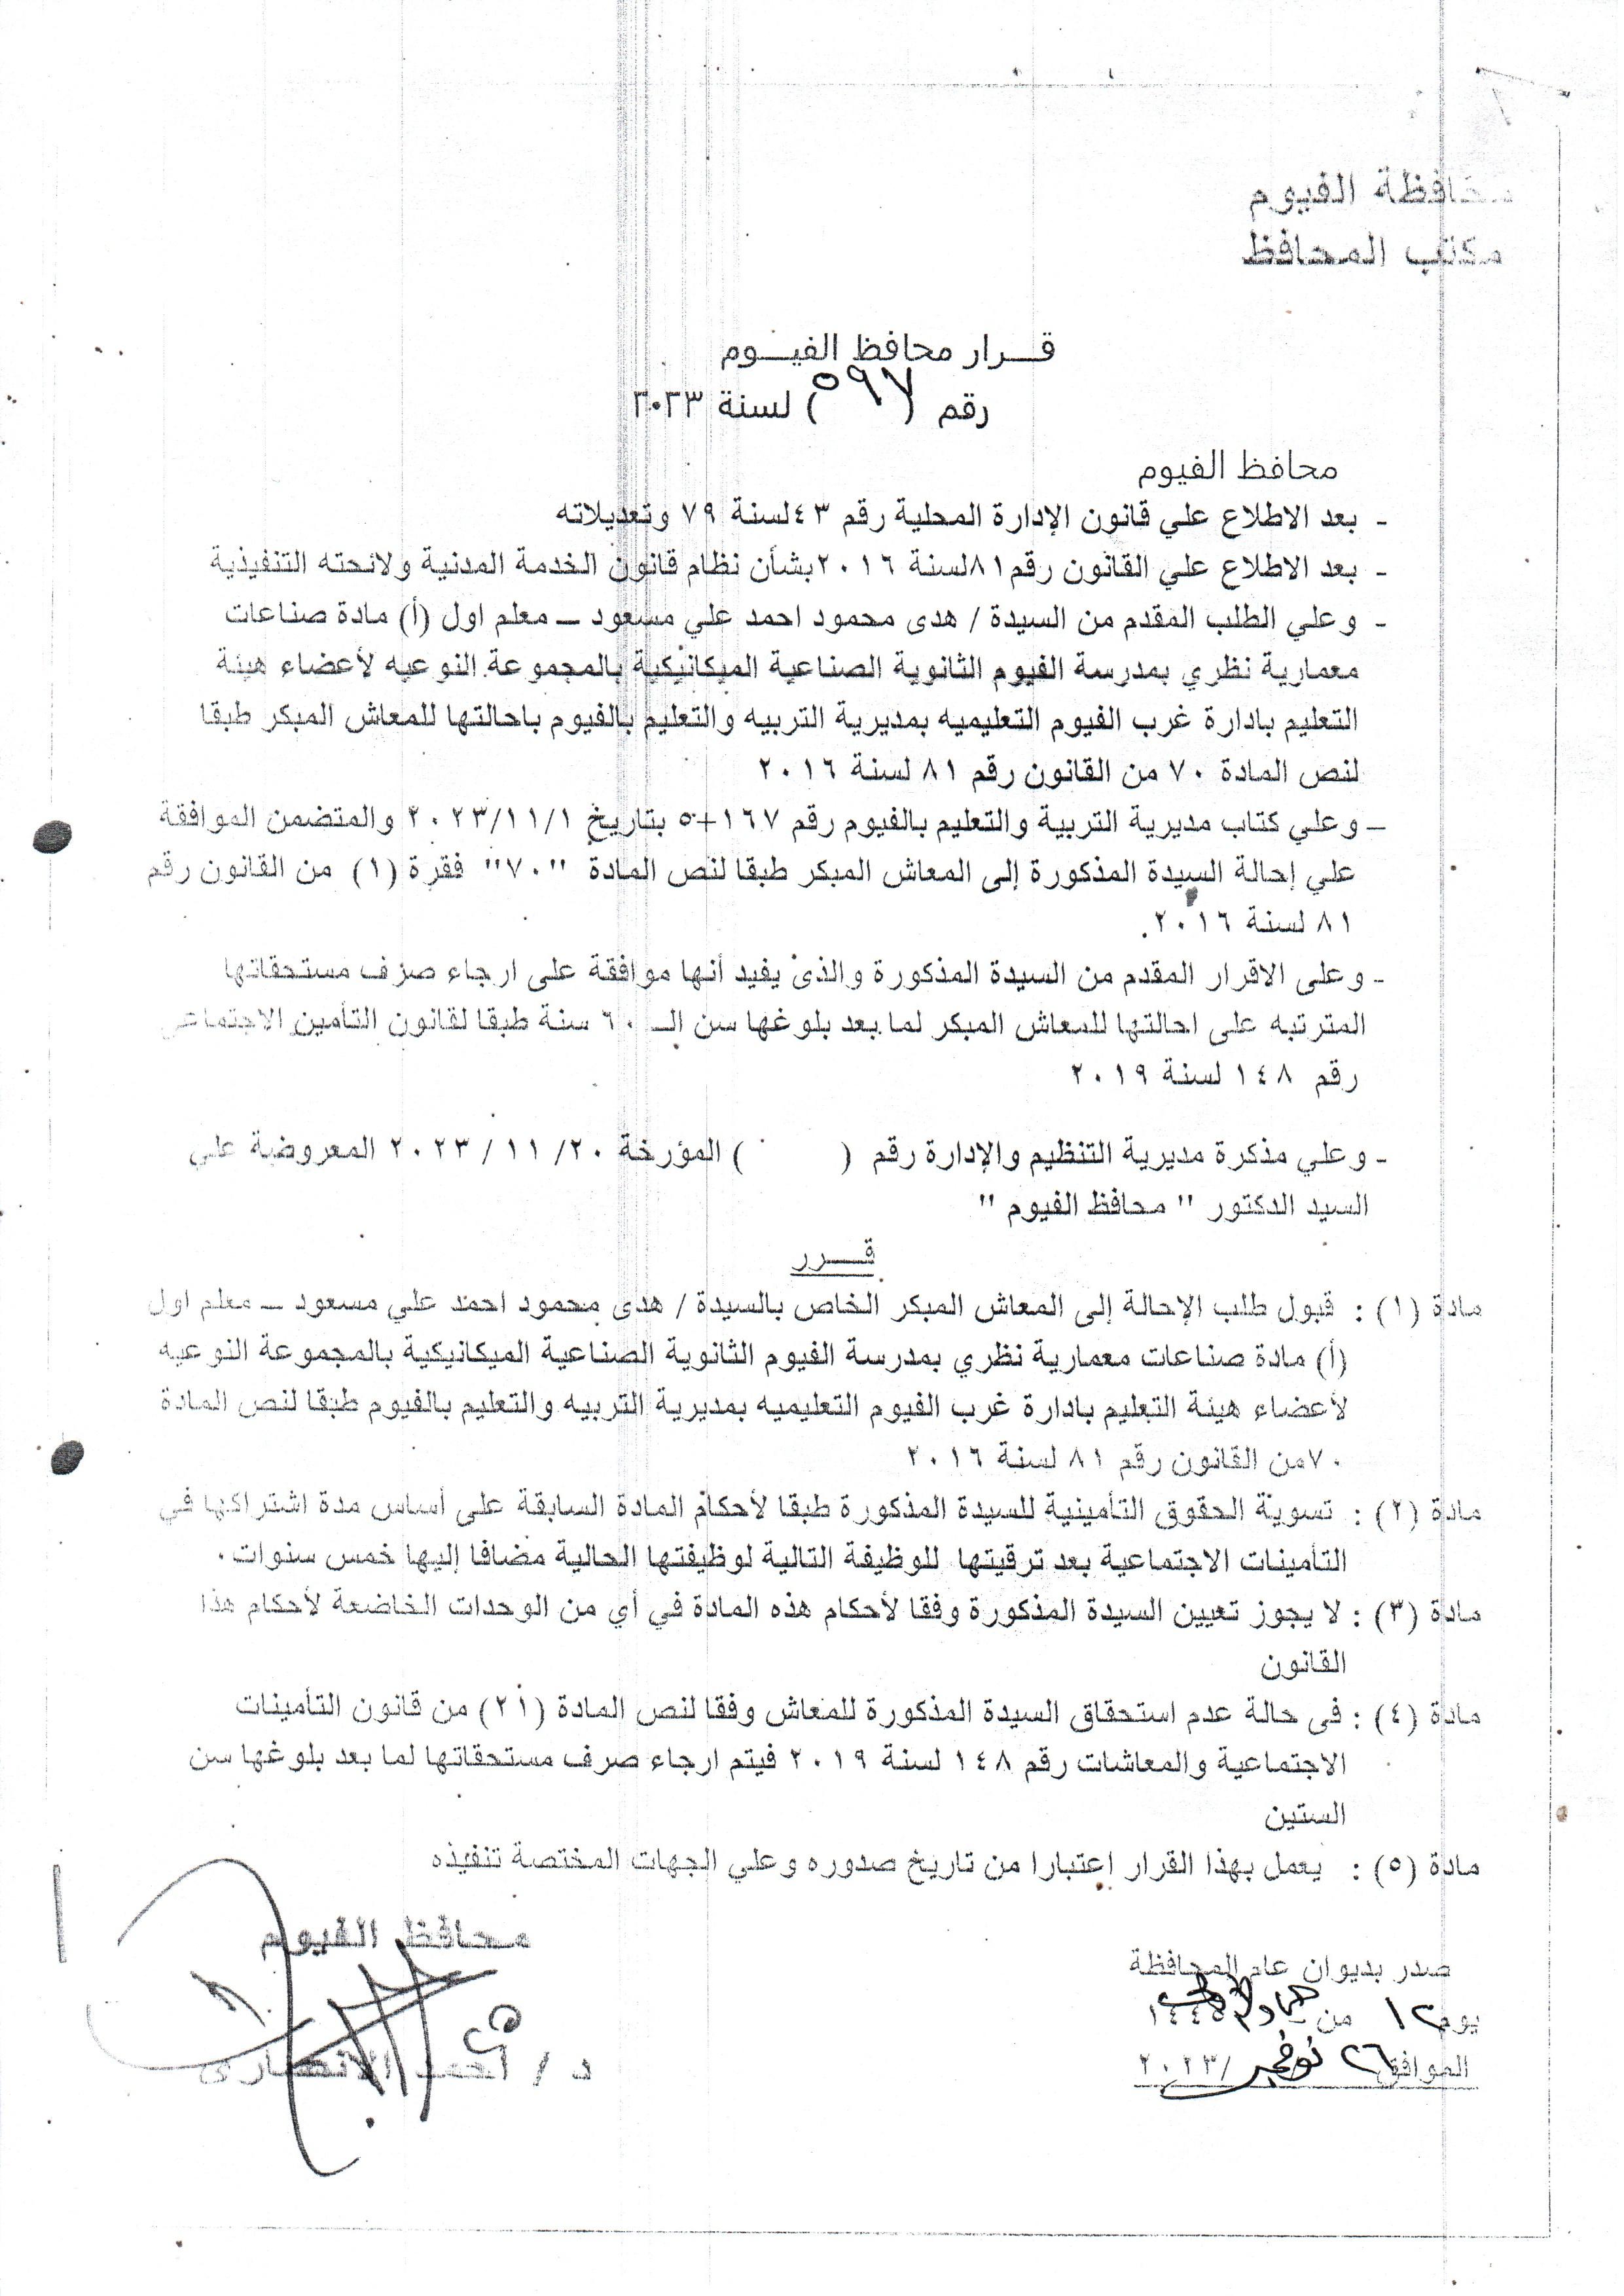 محافظة الفيوم
مكتب المحافظ
قـــرار محافظ الفيـــوم
رقم (٥٩٧) لسنة ٢٠٢٣
محافظ الفيوم
- بعد الاطلاع علي قانون الإدارة المحلية رقم ٤٣لسنة ٧٩ وتعديلاته
- بعد الاطلاع علي القانون رقم٨١لسنة ٢٠١٦بشأن نظام قانون الخدمة المدنية ولائحته التنفيذية
- وعلي الطلب المقدم من السيدة / هدى محمود احمد علي مسعود – معلم اول (أ) مادة صناعات
معمارية نظري بمدرسة الفيوم الثانوية الصناعية الميكانيكية بالمجموعة النوعيه لأعضاء هيئة
التعليم بادارة غرب الفيوم التعليميه بمديرية التربيه والتعليم بالفيوم باحالتها للمعاش المبكر طبقا
لنص المادة ٧٠ من القانون رقم ٨١ لسنة ٢٠١٦
– وعلي كتاب مديرية التربية والتعليم بالفيوم رقم ١٦٧+٥ بتاريخ ٢٠٢٣/١١/١ والمتضمن الموافقة
علي إحالة السيدة المذكورة إلى المعاش المبكر طبقا لنص المادة "٧٠" فقرة (١) من القانون رقم
٨١ لسنة ٢٠١٦.
- وعلى الاقرار المقدم من السيدة المذكورة والذى يفيد أنها موافقة على ارجاء صرف مستحقاتها
المترتبه على احالتها للمعاش المبكر لما بعد بلوغها سن الـ ٦٠ سنة طبقا لقانون التأمين الاجتماعي
رقم ١٤٨ لسنة ٢٠١٩
- وعلي مذكرة مديرية التنظيم والإدارة رقم ( ) المؤرخة ٢٠/ ١١ / ٢٠٢٣ المعروضية علي
السيد الدكتور " محافظ الفيوم "
قـــرر
مادة (١) : قبول طلب الإحالة إلى المعاش المبكر الخاص بالسيدة / هدى محمود احمد علي مسعود – معلم اول
(أ) مادة صناعات معمارية نظري بمدرسة الفيوم الثانوية الصناعية الميكانيكية بالمجموعة النوعيه
لأعضاء هيئة التعليم بادارة غرب الفيوم التعليميه بمديرية التربيه والتعليم بالفيوم طبقا لنص المادة
٧٠من القانون رقم ٨١ لسنة ٢٠١٦
مادة (٢) : تسوية الحقوق التأمينية للسيدة المذكورة طبقا لأحكام المادة السابقة على أساس مدة اشتراكها في
التأمينات الاجتماعية بعد ترقيتها للوظيفة التالية لوظيفتها الحالية مضافا إليها خمس سنوات.
مادة (٣) : لا يجوز تعيين السيدة المذكورة وفقا لأحكام هذه المادة في أي من الوحدات الخاضعة لأحكام هذا
القانون
مادة (٤) : فى حالة عدم استحقاق السيدة المذكورة للمعاش وفقا لنص المادة (٢١) من قانون التأمينات
الاجتماعية والمعاشات رقم ١٤٨ لسنة ٢٠١٩ فيتم ارجاء صرف مستحقاتها لما بعد بلوغها سن
الستين
مادة (٥) : يعمل بهذا القرار إعتبارا من تاريخ صدوره وعلي الجهات المختصة تنفيذه
محافظ الفيوم
د / احمد الانصارى
صدر بديوان عام المحافظة
يوم ١٢ من جماد الأولى ١٤٤٥
الموافق ٢٦ نوفمبر /٢٠٢٣